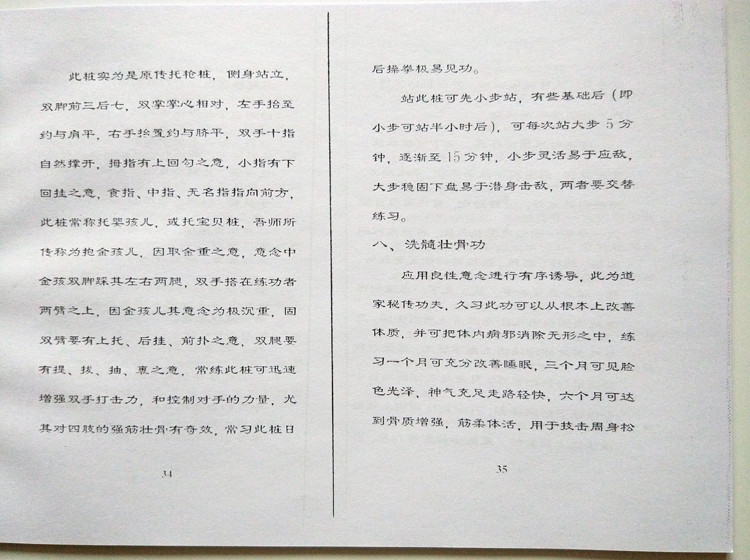 此桩实为是原传托枪桩，侧身站立，
双脚前三后七，双掌掌心相对，左手抬至
约与肩平，右手抬置约与脐平，双手十指
自然撑开，拇指有上回勾之意，小指有下
回挂之意，食指、中指、无名指指向前方，
此桩常称托婴孩儿，或托宝贝桩，吾师所
传称为抱金孩儿，因取金重之意，意念中
金孩双脚踩其左右两腿，双手搭在练功者
两臂之上，因金孩儿其意念为极沉重，固
双臂要有上托、后挂、前扑之意，双腿要
有提、拔、抽、裹之意，常练此桩可迅速
增强双手打击力，和控制对手的力量，尤
其对四肢的强筋壮骨有奇效，常习此桩日
34
后操拳极易见功。
站此桩可先小步站，有些基础后（即
小步可站半小时后），可每次站大步 5 分
钟，逐渐至 15 分钟，小步灵活易于应敌，
大步稳固下盘易于潜身击敌，两者要交替
练习。
八、洗髓壮骨功
应用良性意念进行有序诱导，此为道
家秘传功夫，久习此功可以从根本上改善
体质，并可把体内病邪消除无形之中，练
习一个月可充分改善睡眠，三个月可见脸
色光泽，神气充足走路轻快，六个月可达
到骨质增强，筋柔体活，用于技击周身松
35